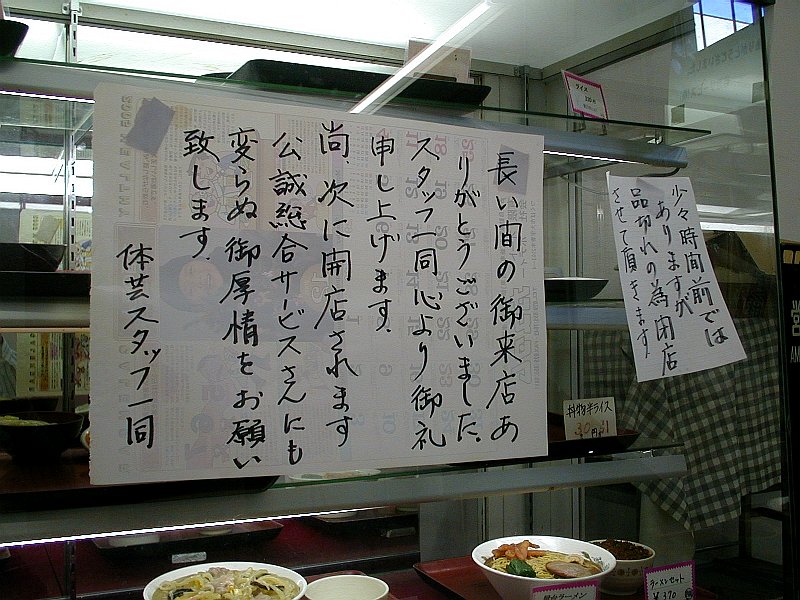 長い間の御来店あ
りがとうございました。
スタッフ一同心より御礼
申し上げます。
尚次に開店されます
公誠総合サービスさんにも
変らぬ御厚情をお願い
致します。
体芸スタッフ一同
少々時間前では
ありますが
品切れの為閉店
させて頂きます。
ライス
丼物半ライス
ラーメンセット
¥370